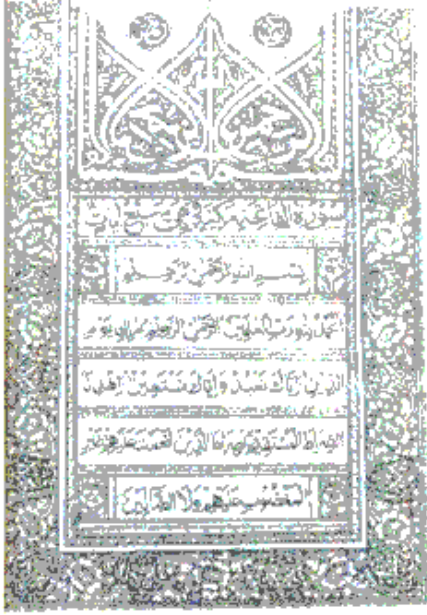 سورة الفاتحة مكية وهي سبع آيات
بسم الله الرحمن الرحيم
الحمد لله رب العالمين الرحمن الرحيم ملك يوم
الدين إياك نعبد وإياك نستعين اهدنا
الصراط المستقيم صراط الذين أنعمت عليهم غير
المغضوب عليهم ولا الضالين